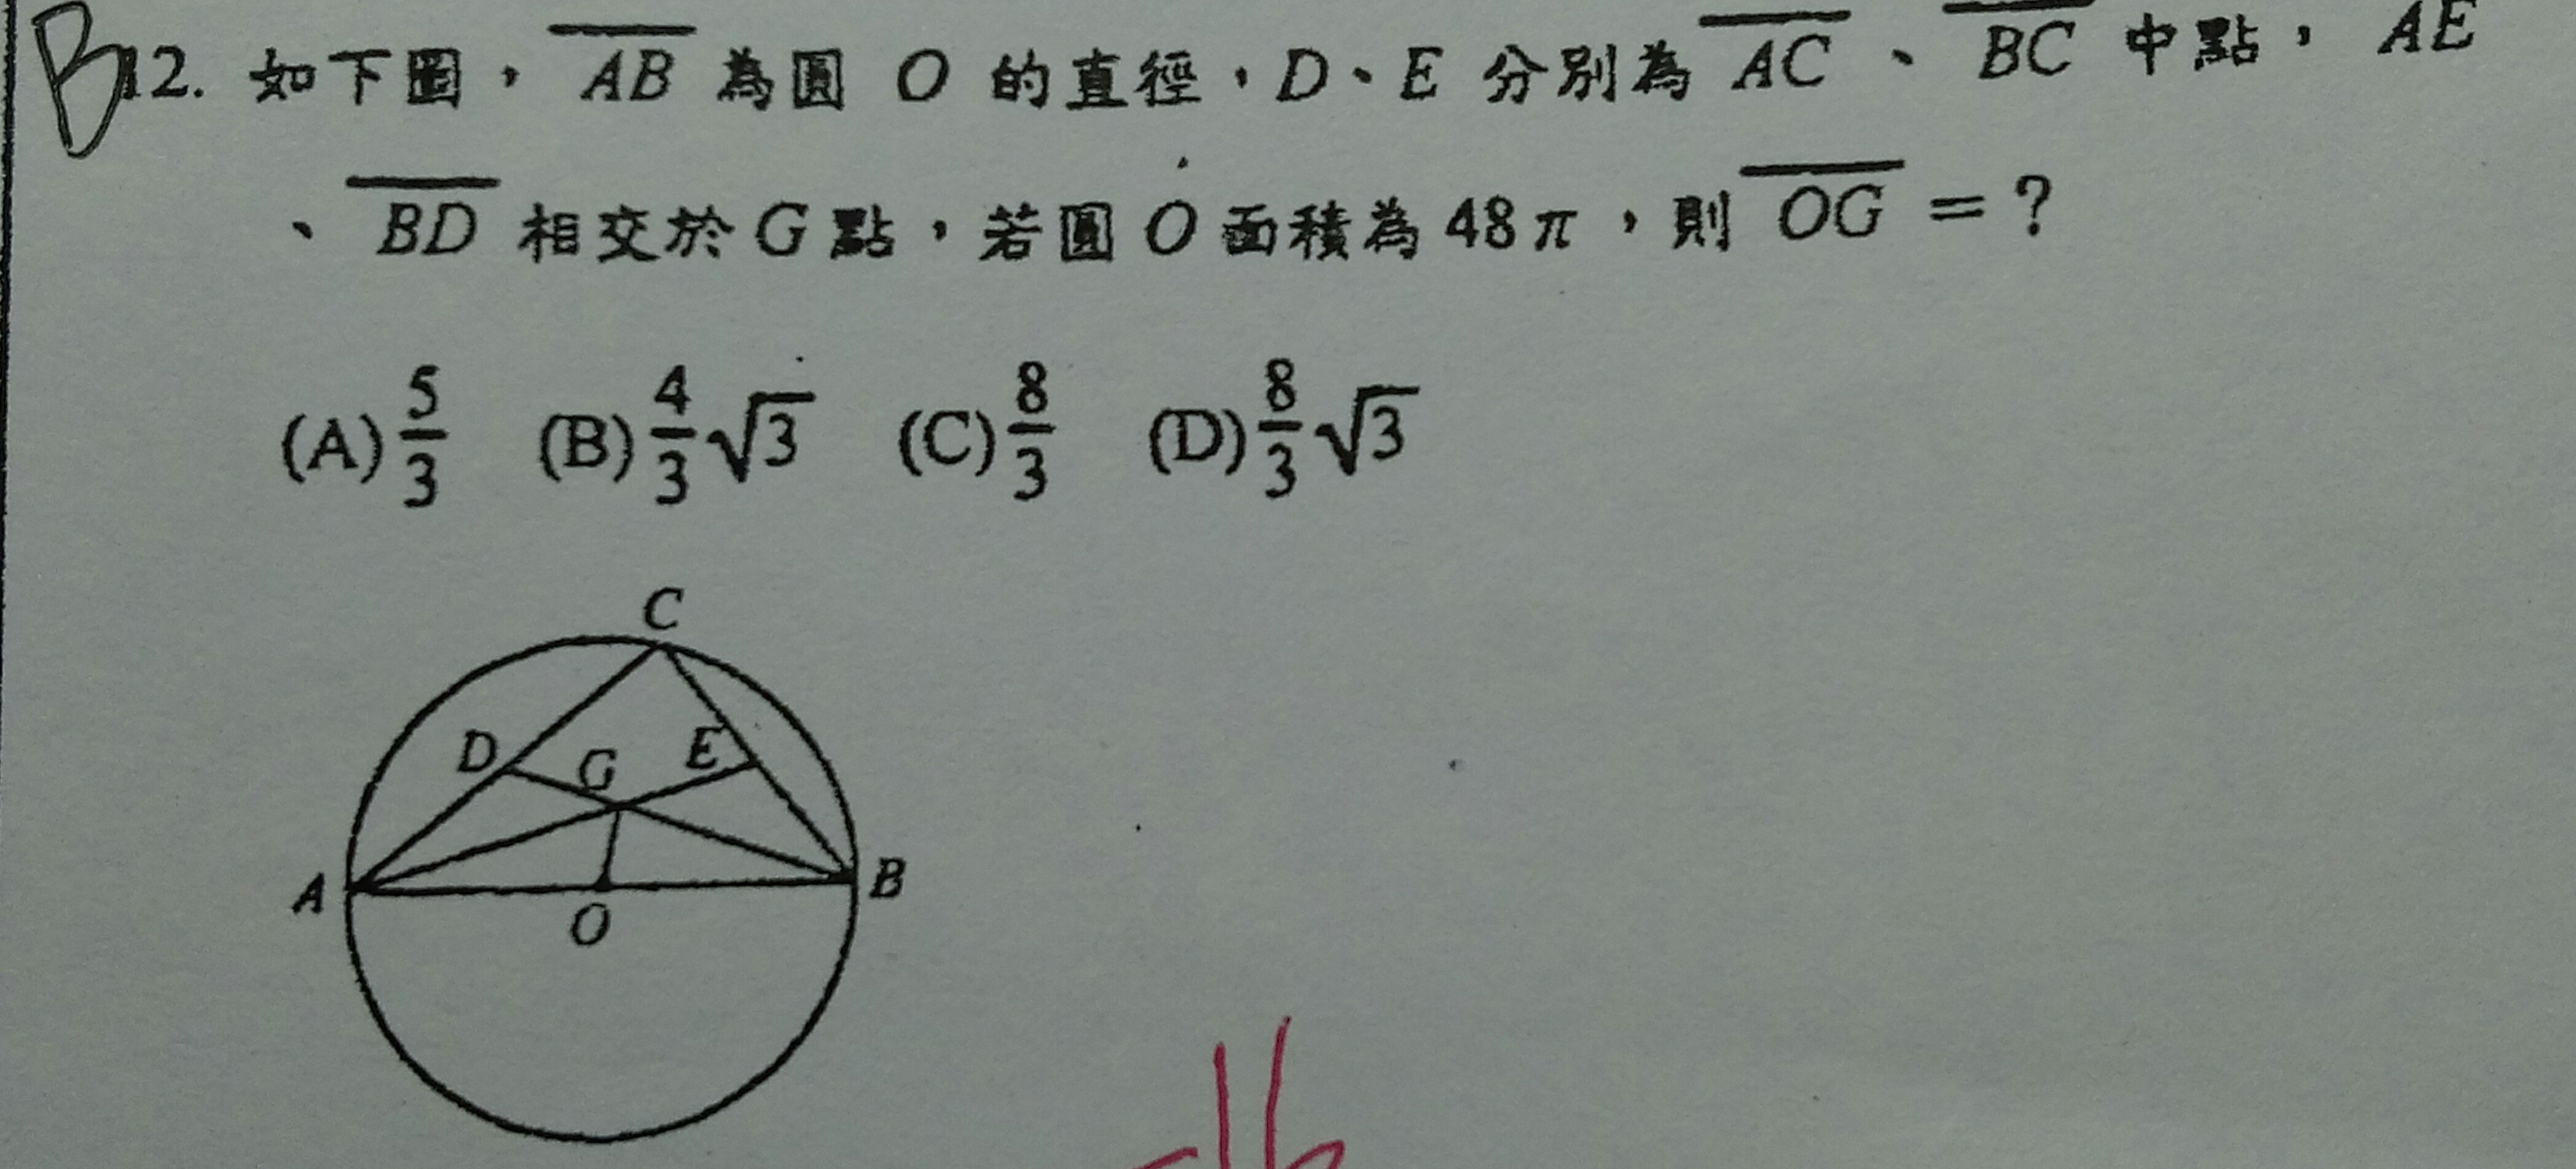 B12. 如下圖，AB 為圓 O 的直徑，D、E 分別為 AC 、 BC 中點， AE
、 BD 相交於 G 點，若圓 O 面積為 48π，則 OG = ?
(A) 5/3 (B) 4/3 √3 (C) 8/3 (D) 8/3 √3
C
D G E
A B
O